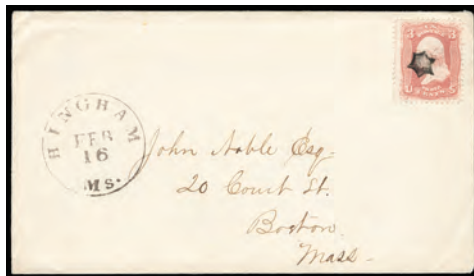 3 3
U S
HINGHAM
FEB
16
Ms.
John Noble Esq.
20 Court St.
Boston.
Mass-